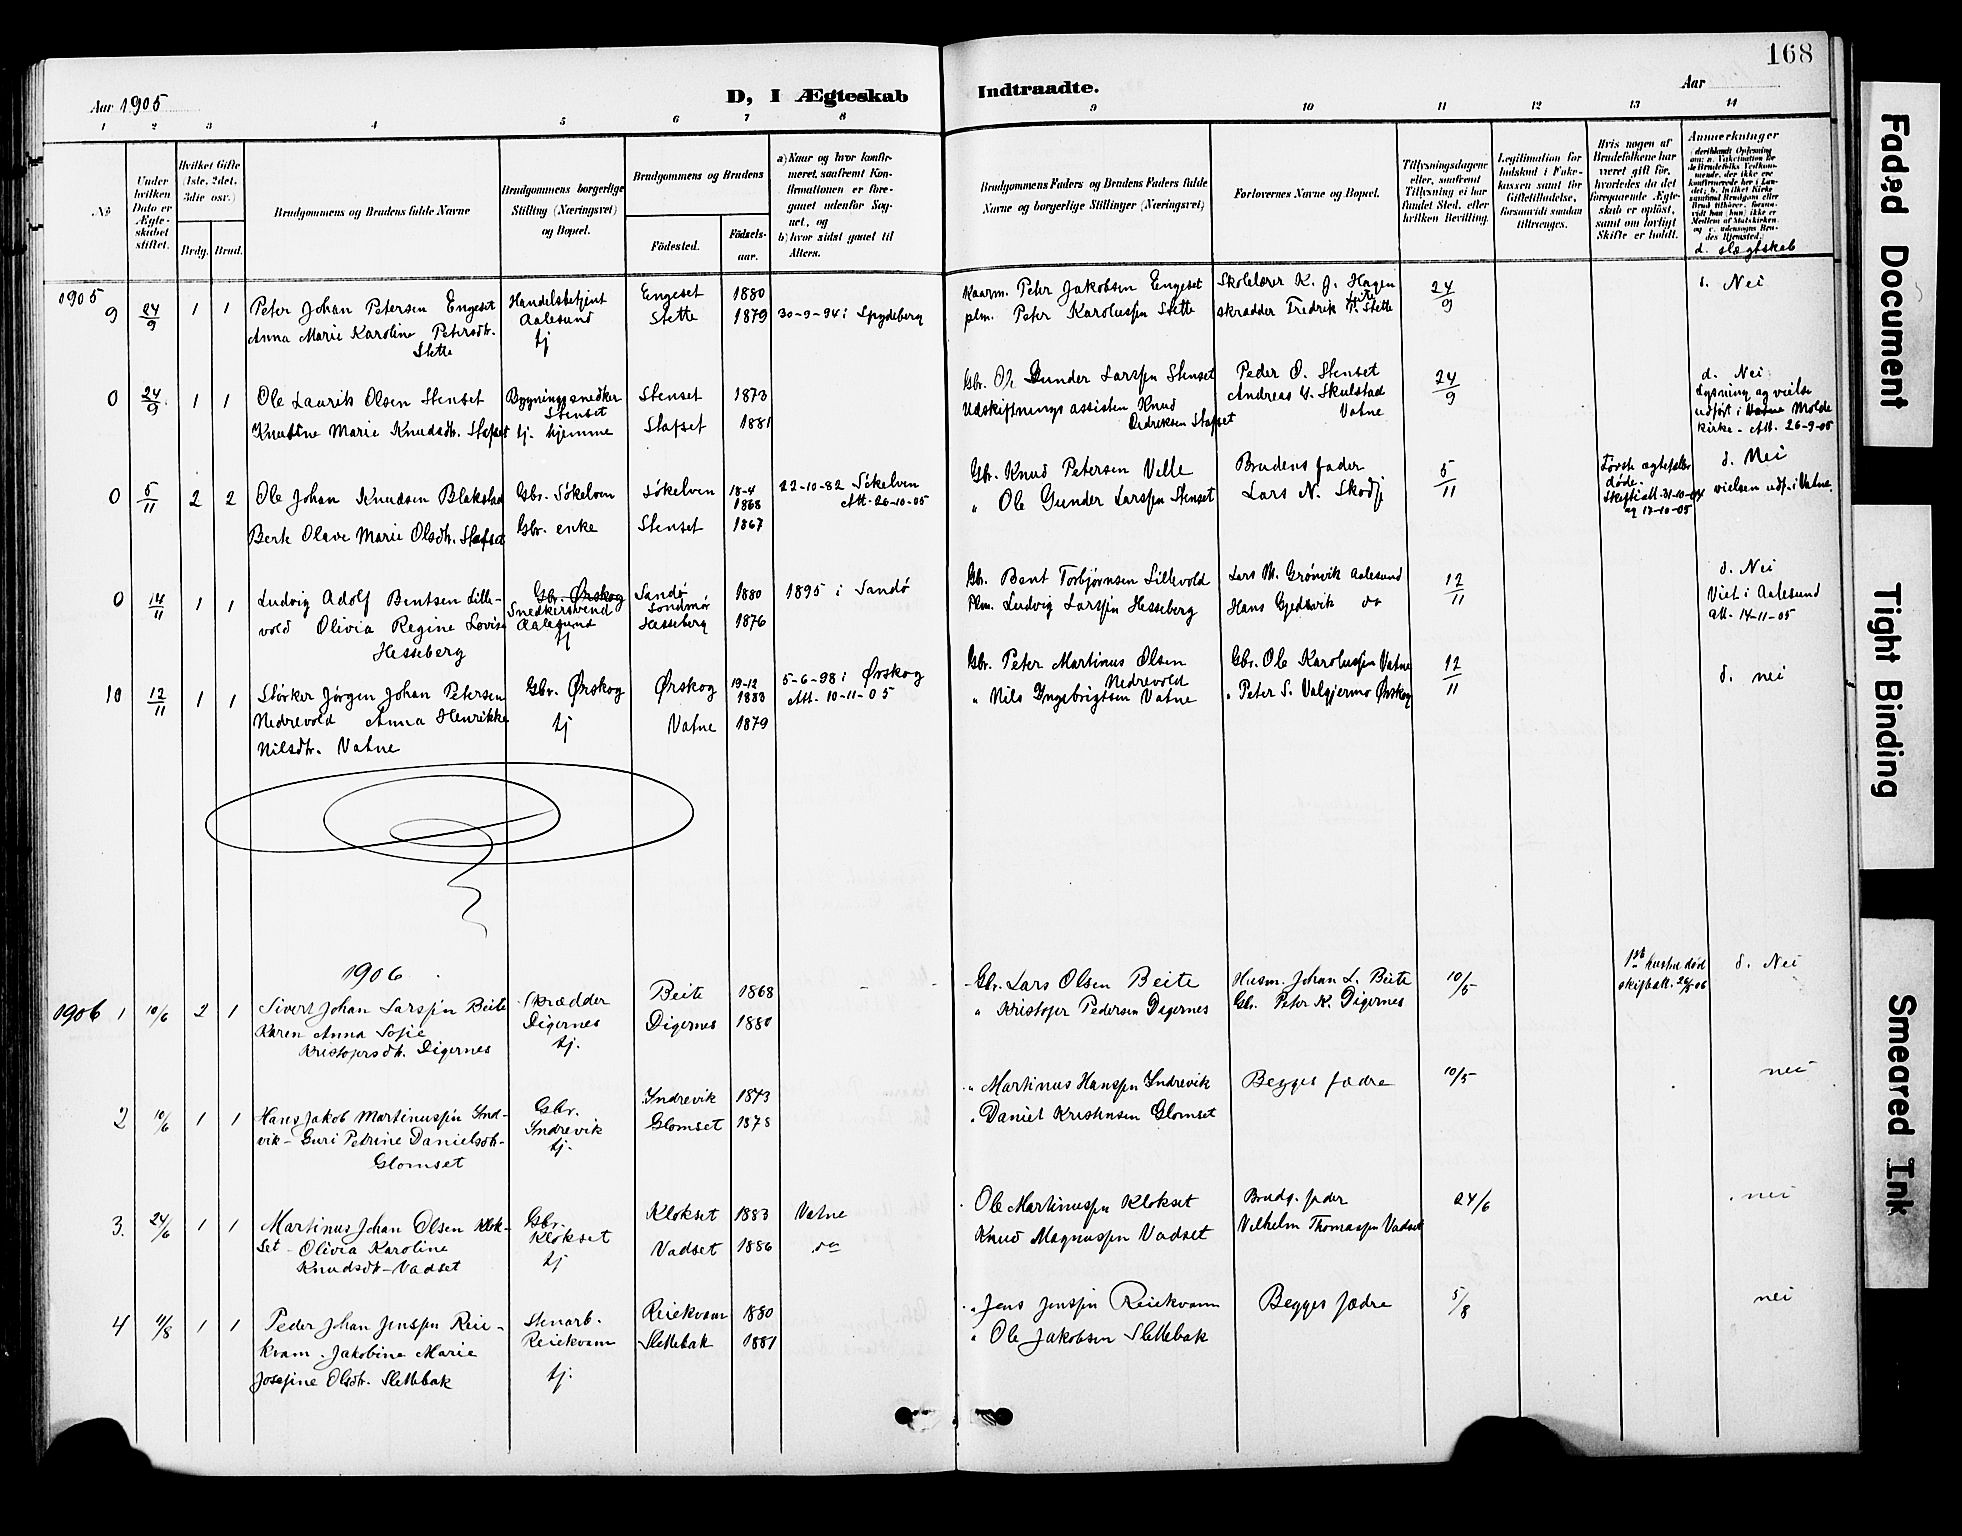 168
Aar 1905
D, I Ægteskab
Indtraadte.
Aar
1 2 3 4 5 6 7 8 9 10 11 12 13 14
No
Under hvilken Dato er Ægteskabet stiftet.
Hvilket Gifte (1ste, 2det, 3die osv.)
Brdg. Brud.
Brudgommens og Brudens fulde Navne
Brudgommens borgerlige Stilling (Næringsvei) og Bopæl.
Brudgommens og Brudens
Födested.
Födsels-aar.
a) Naar og hvor konfirmeret, saafremt Konfirmationen er foregaaet udenfor Sognet, og
b) hvor sidst gaaet til Alters.
Brudgommens Faders og Brudens Faders fulde Navne og borgerlige Stillinger (Næringsvei)
Forlovernes Navne og Bopæl.
Tillysningsdagene eller, saafremt Tillysning ei har fundet Sted, efter hvilken Bevilling.
Legitimation for Indskud i Enkekassen samt for Giftetilladelse, forsaavidt saadan tiltrænges.
Hvis nogen af Brudefolkene har været gift før, hvorledes da det foregaaende Ægteskab er oplöst, samt om lovligt Skifte er holdt.
Anmerkninger
d. slægtskab
1905
9 24/9 1 1 Peter Johan Petersen Engeset Handelsbetjent Engeset 1880
Anna Marie Karoline Petersdtr. Aalesund Slette 1879 30-9-94 i Spydeberg
Slette tj
Kaarm. Peter Jakobsen Engeset Skolelærer K. J. Hagen 24/9 d. Nei
plm. Peter Karolussen Slette skrædder Fredrik P. Slette
0 24/9 1 1 Ole Laurits Olsen Stenset Bygningssnedker Stenset 1873
Stenset
Knutine Marie Knudsdtr. Slafset tj. hjemme Slafset 1881
Gbr. Ole Gunder Larssen Stenset Peder O. Stenset 24/9 d. Nei
Udskiftningsassisten Knud Andreas G. Skulstad
Didriksen Slafset Vatne
Lysning og vielse
udført i Vatne Molde
kirke - Att. 26-9-05
0 5/11 2 2 Ole Johan Knudsen Blakstad Gbr. Søkelven Søkelven 18-4 1868 22-10-82 Søkelven
Att. 26-10-05
Berte Olave Marie Olsdtr. Slafset Gbr. enke Stenset 1867
Gbr. Knud Petersen Velle Brudens fader 5/11
" Ole Gunder Larssen Stenset Lars N. Skodj
Første ægtefæller
døde.
Skifteatt. 31-10-04
og 17-10-05
d. Nei
vielsen udf. i Vatne.
0 14/11 1 1 Ludvig Adolf Bentsen Lille- Gbr. Ørskog Sandø 1880 1895 i Sandø
Snedkersvend Søndmør
vold Olivia Regine Lovise Aalesund Hesseberg 1876
Hesseberg tj
Gbr. Bent Torbjørnsen Lillevold Lars M. Grønvik Aalesund 12/11 d. Nei
Plm. Ludvig Larssen Hesseberg Hans Gjedsvik do
Viet i Aalesund
att. 14-11-05
10 12/11 1 1 Størker Jørgen Johan Petersen Gbr. Ørskog Ørskog 19-12 1883 5-6-98 i Ørskog
Att. 10-11-05
Nedrevold Anna Henrikke tj Vatne 1879
Nilsdtr. Vatne
Gbr. Peter Martinus Olsen Gbr. Ole Karolussen Vatne 12/11 d. nei
Nedrevold
" Nils Yngebrigtsen Vatne " Peter S. Valgjermo Ørskog
1906
1906 1 10/6 2 1 Sivert Johan Larssen Beite Skrædder Beite 1868
Karen Anna Sofie Digernes Digernes 1880
Kristofersdtr. Digernes tj.
Gbr. Lars Olsen Beite Husm. Johan L. Beite 10/5
" Kristofer Pedersen Digernes Gbr. Peter K. Digernes
1ste hustru død
skifteatt.
d. Nei
2 10/6 1 1 Hans Jakob Martinussen Ynd- Gbr. Yndrevik 1873
vik - Guri Petrine Danielsdtr. Yndrevik Glomset 1878
Glomset tj.
" Martinus Hanssen Yndrevik Begges fædre 10/5 nei
" Daniel Kristensen Glomset
3. 24/6 1 1 Martinus Johan Olsen Klok- Gbr. Klokset 1883 Vatne
set - Olivia Karoline Klokset Vadset 1886 do
Knudsdtr - Vadset tj
Ole Martinussen Klokset Brudg. fader 24/6 nei
Knud Magnussen Vadset Vilhelm Thomassen Vadset
4 4/8 1 1 Peder Johan Jenssen Reie- Stenarb. Reiekvam 1880
kvam. Jakobine Marie Reiekvam Slettebak 1881
Josefine Olsdtr. Slettebak tj.
" Jens Jenssen Reiekvam Begges fædre 5/8 nei
" Ole Jakobsen Slettebak
Faded Document
Tight Binding
Smeared Ink